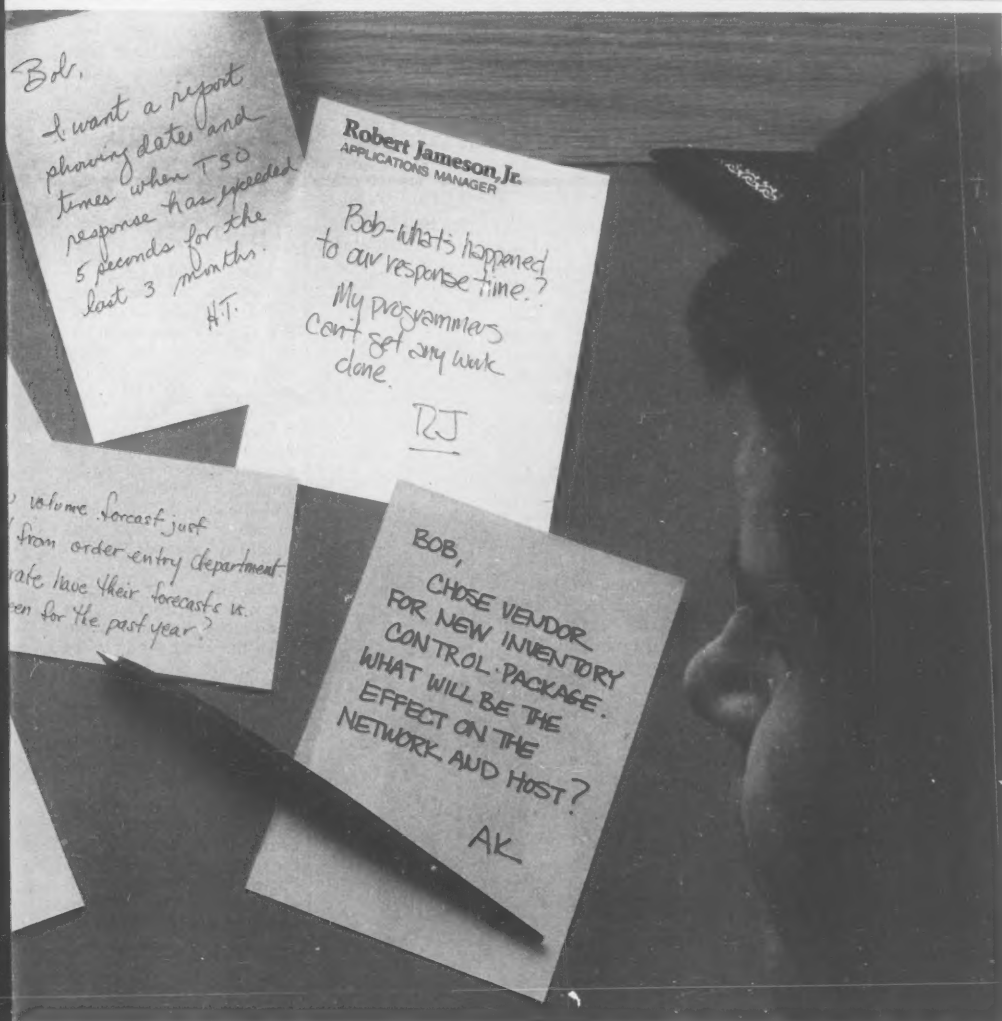 Bob,
I want a report
showing dates and
times when TSO
response has exceeded
5 seconds for the
last 3 months.
H.T.
Robert Jameson, Jr.
APPLICATIONS MANAGER
Bob-what's happened
to our response time.?
My programmers
can't get any work
done.
RJ
volume forcast just
from order entry department.
have their forecasts vs.
for the past year?
BOB,
CHOSE VENDOR
FOR NEW INVENTORY
CONTROL PACKAGE.
WHAT WILL BE THE
EFFECT ON THE
NETWORK AND HOST?
AK